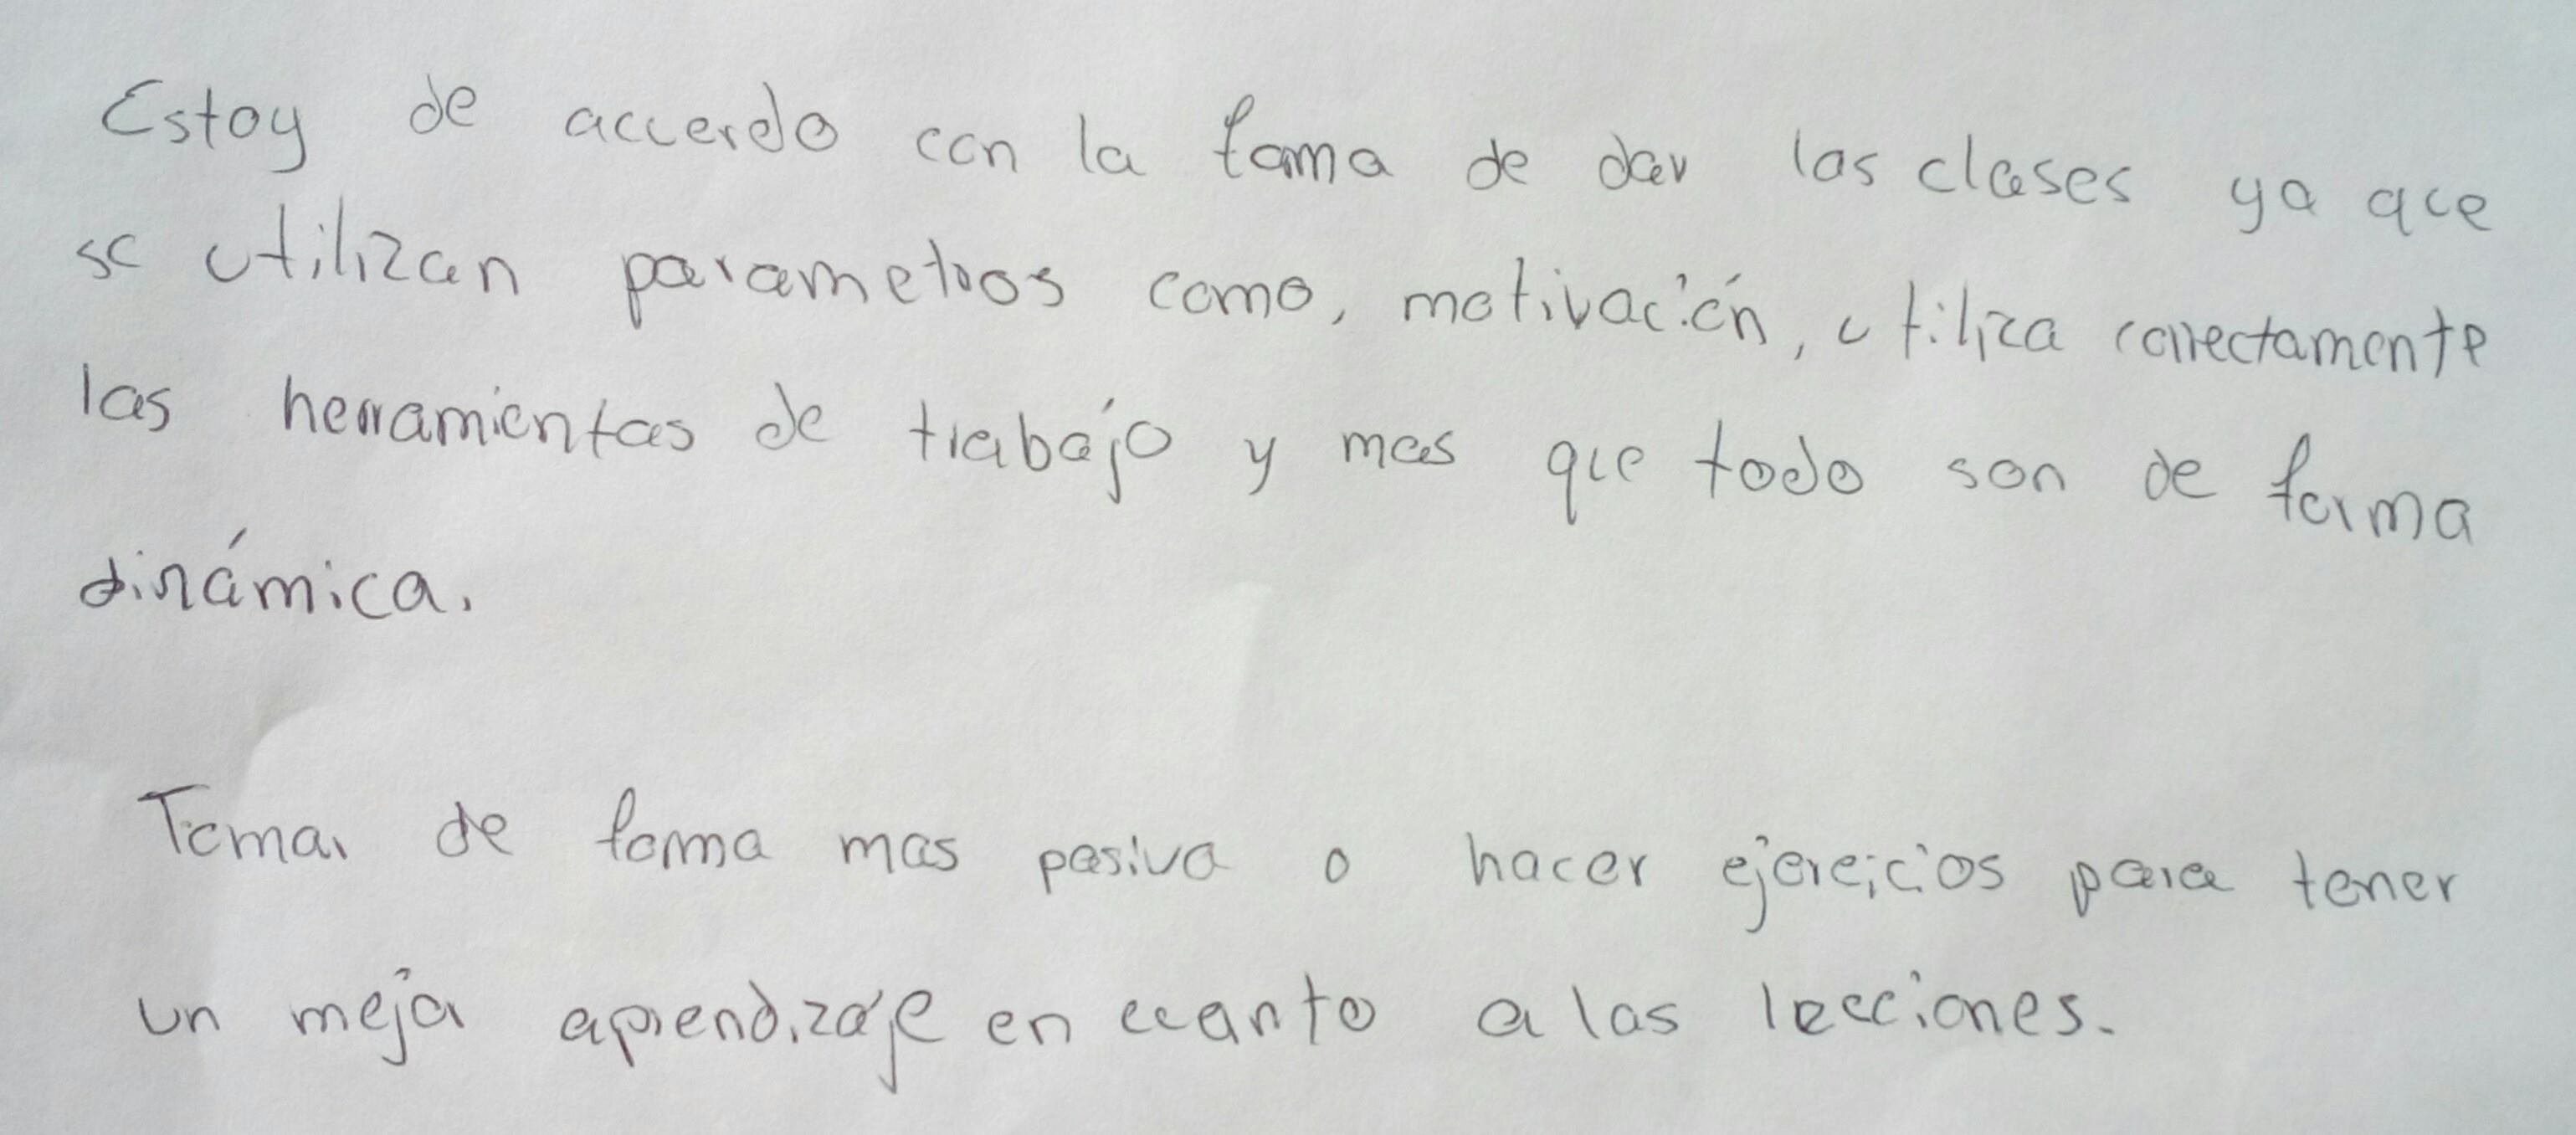 Estoy de acuerdo con la forma de dar las clases ya que
se utilizan parametros como, motivación, utiliza correctamente
las herramientas de trabajo y mas que todo son de forma
dinámica.
Tomar de forma mas pasiva o hacer ejercicios para tener
un mejor aprendizaje en cuanto a las lecciones.